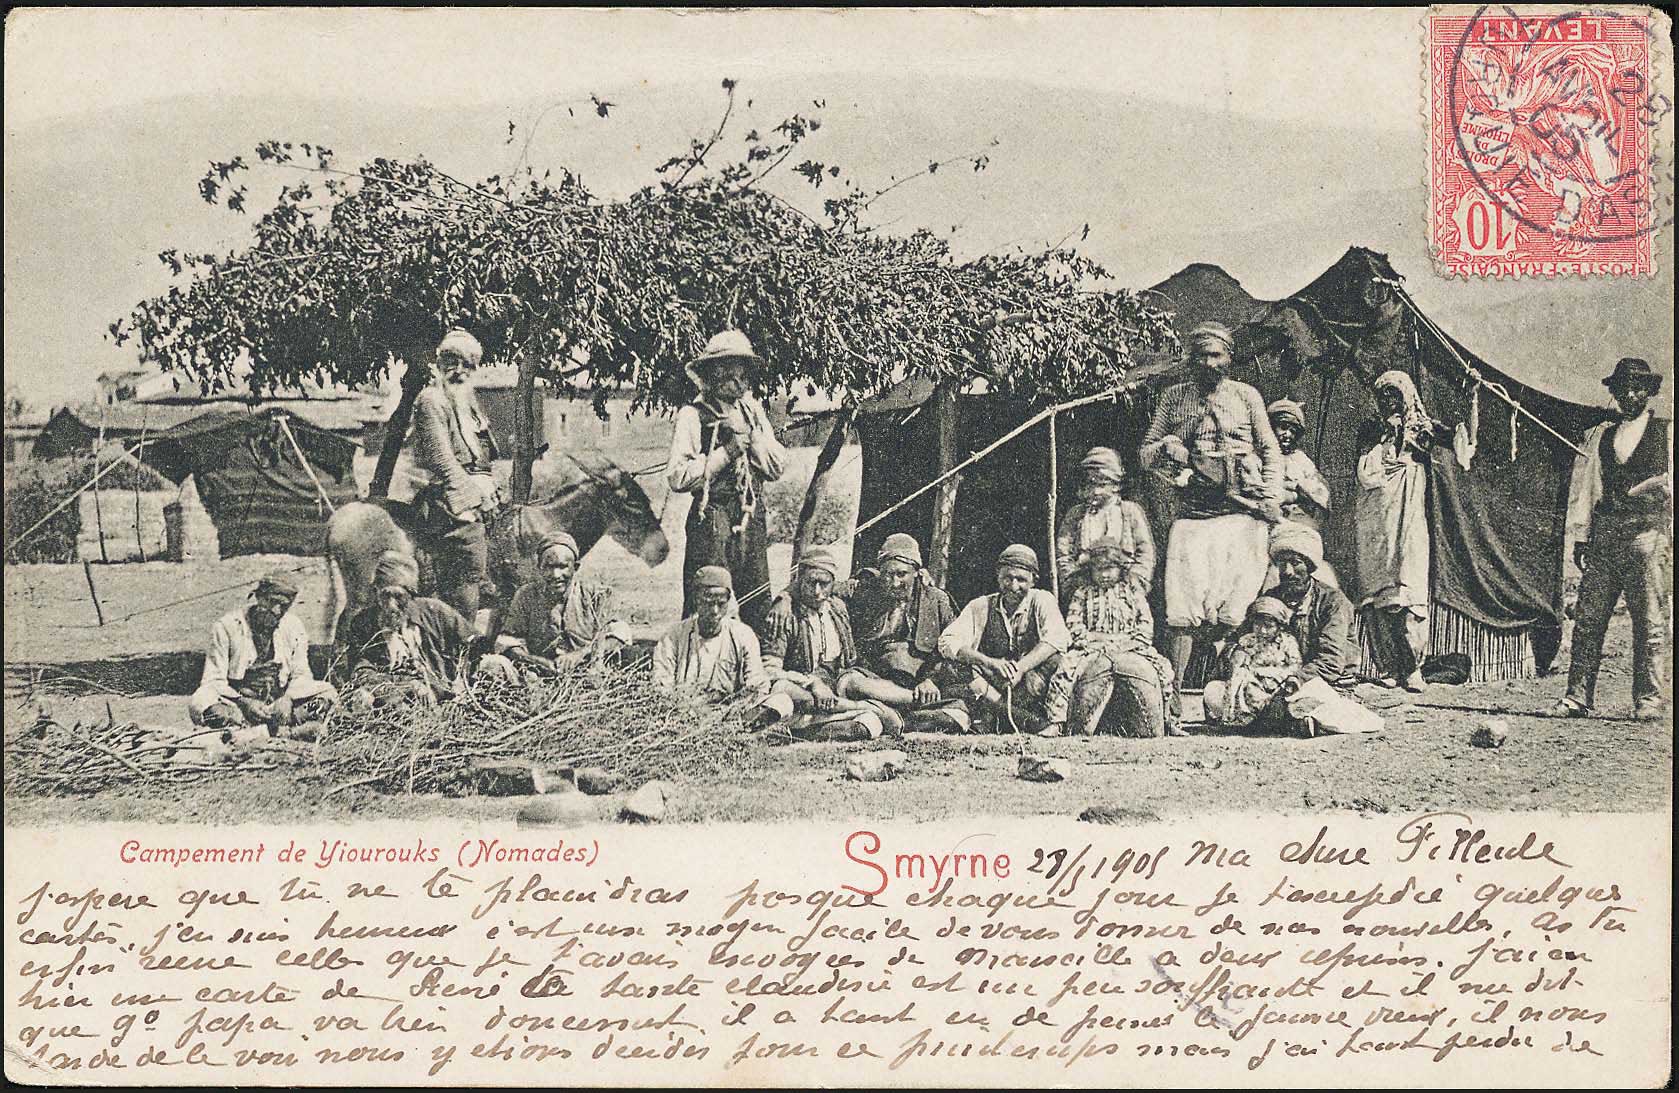 LEVANT
DROITS
DE
L'HOMME
10
POSTE·FRANÇAISE
28
AVRIL
05
Campement de Yiourouks (Nomades)
Smyrne 28/ 1905 Ma chere Filleule
J'espere que tu ne te plaindras pas que chaque jour je quelques
cartes, j'en suis heureux c'est un moyen facile de vous donner de nos nouvelles, As tu
enfin recue celles que je t'avais envoyees de Marseille a deux reprises. J'ai eu
hier une carte de René la tante Claudine est un peu souffrante et il me dit
que gd papa va bien doucement, il a tant eu de peines le pauvre vieux, il nous
tarde de le voir nous y etions decides pour ce printemps mais j'ai tant perdu de